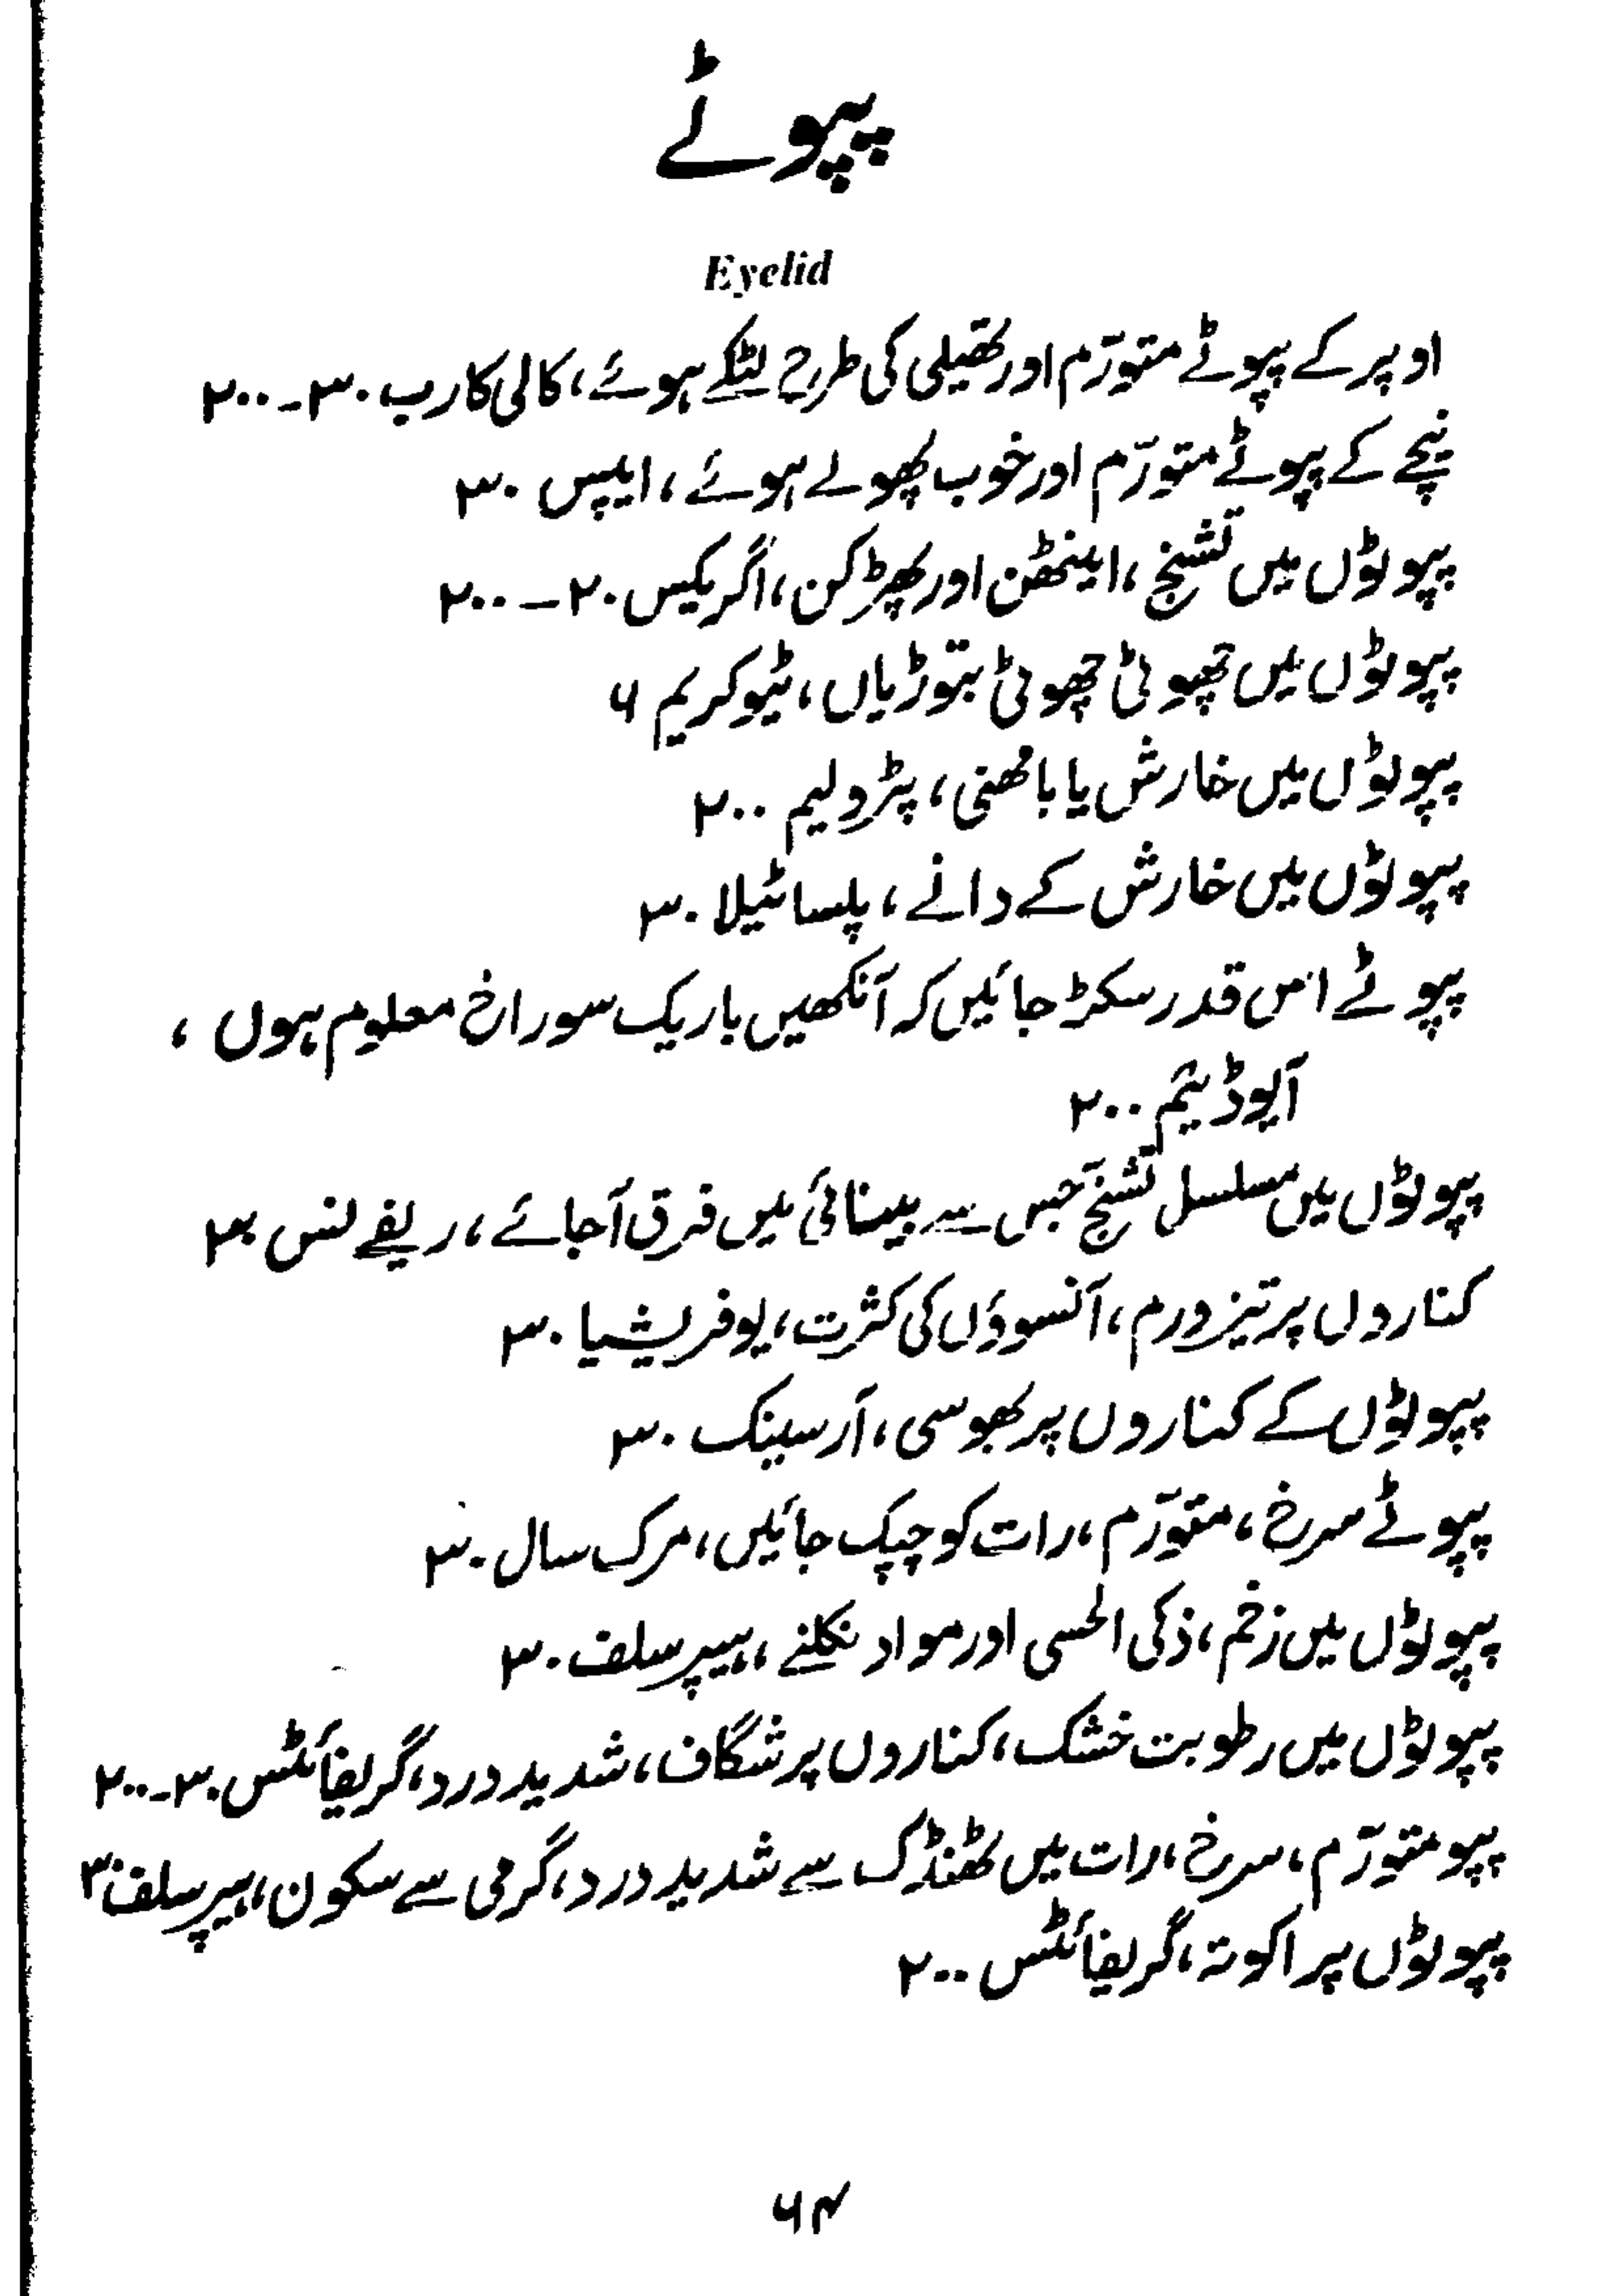 پپوٹے
Eyelid
اوپر کے پپوٹے متورّم اور تھیلی کی طرح لٹکے ہوئے، کالی کارب ۳۰ ـ ۲۰۰
نیچے کے پپوٹے متورّم اور خوب پھولے ہوئے، ایپس ۳۰
پپوٹوں میں تشنج، اینٹھن اور پھڑکن، اگریکیس ۲۰ ـ ۲۰۰
پپوٹوں میں چھوٹی چھوٹی بتوڑیاں، ٹیوکریم ۶
پپوٹوں میں خارش یا بامھنی، پٹرولیم ۲۰۰
پپوٹوں میں خارش کے دانے، پلساٹیلا ۳۰
پپوٹے اس قدر سکڑ جائیں کہ آنکھیں باریک سوراخ معلوم ہوں،
آیوڈیئم ۲۰۰
پپوٹوں میں مسلسل تشنج جس سے بینائی میں فرق آجائے، ریفے نس ۳۰
کناروں پر تیز ورم، آنسوؤں کی کثرت، یوفریشیا ۳۰
پپوٹوں کے کناروں پر بھوسی، آرسینک ۳۰
پپوٹے سرخ، متورّم، رات کو چپک جائیں، مرک سال ۳۰
پپوٹوں میں زخم، ذکی الحسی اور مواد نکلنے، ہیپر سلف ۳۰
پپوٹوں میں رطوبت خشک، کناروں پر شگاف، شدید درد، گریفائٹس ۳۰ ـ ۲۰۰
پپو متورّم، سرخ، رات میں ٹھنڈک سے شدید درد، گرمی سے سکون، ہیپر سلف ۳۰
پپوٹوں پر اکوتہ، گریفائٹس ۲۰۰
۶۴